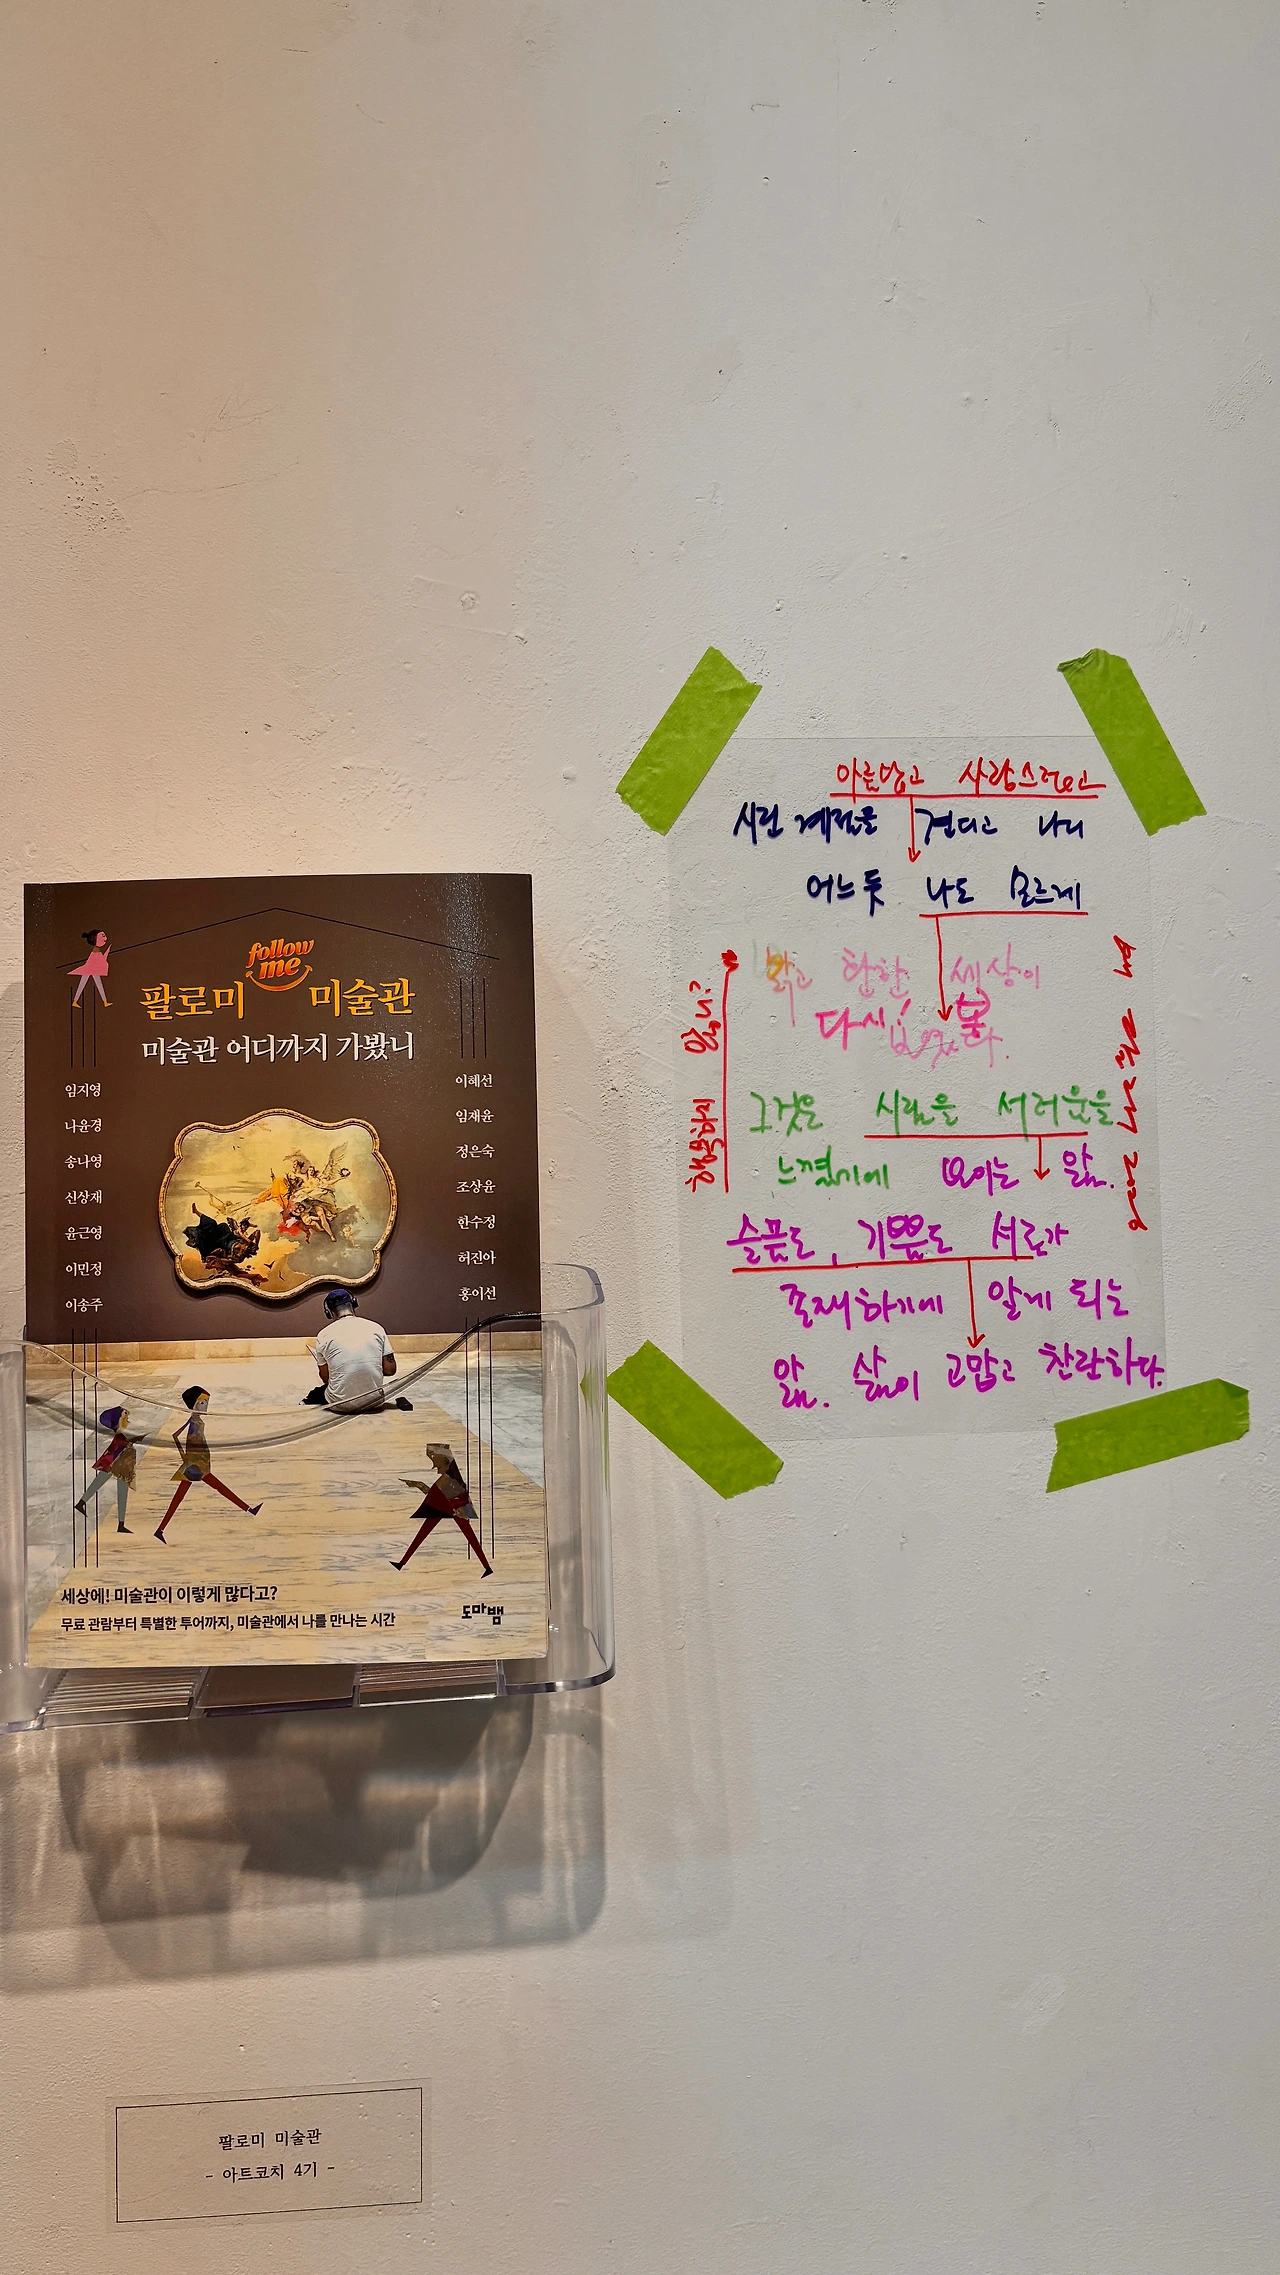 follow
me
팔로미 미술관
미술관 어디까지 가봤니
임지영
나윤경
송나영
신상재
윤근영
이민정
이송주
이혜선
임재윤
정은숙
조상윤
한수정
허진아
홍이선
세상에! 미술관이 이렇게 많다고?
무료 관람부터 특별한 투어까지, 미술관에서 나를 만나는 시간
도마뱀
팔로미 미술관
- 아트코치 4기 -
아름답고 사랑스러오고
시린 계절을 견디고 나니
어느듯 나도 모르게
맑고 환한 세상이
다시
그것은 시림을 서러움을
느꼈기에 보이는 앎.
슬픔도, 기쁨도 서로가
존재하기에 알게 되는
앎. 삶이 고맙고 찬란하다.
행복하지 않니?